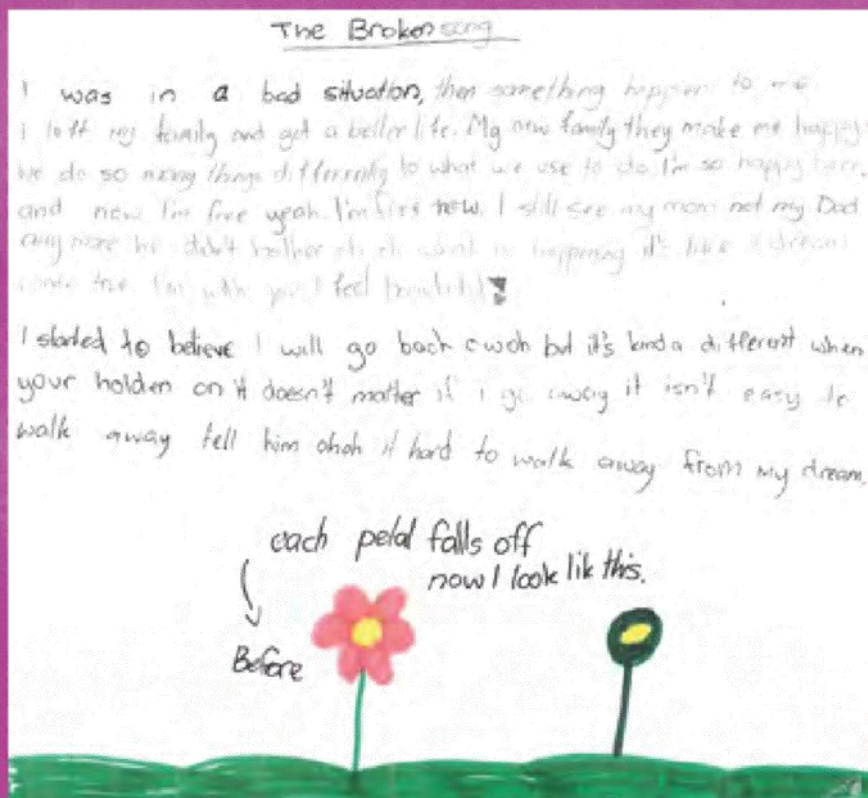 The Broken song
I was in a bad situation, then something happen to me
i left my family and got a better life. My new family they make me happy
we do so many things differently to what we use to do I'm so happy here,
and now I'm free yeah I'm free now. I still see my mom not my Dad
any more he didn't bother oh oh what is happening it's like a dream
come true I'm with you I feel beautiful
I started to believe I will go back but it's kinda different when
your holden on it doesn't matter if i go away it isn't easy to
walk away tell him ohoh it hard to walk away from my dream.
each petal falls off
now I look lik this.
Before